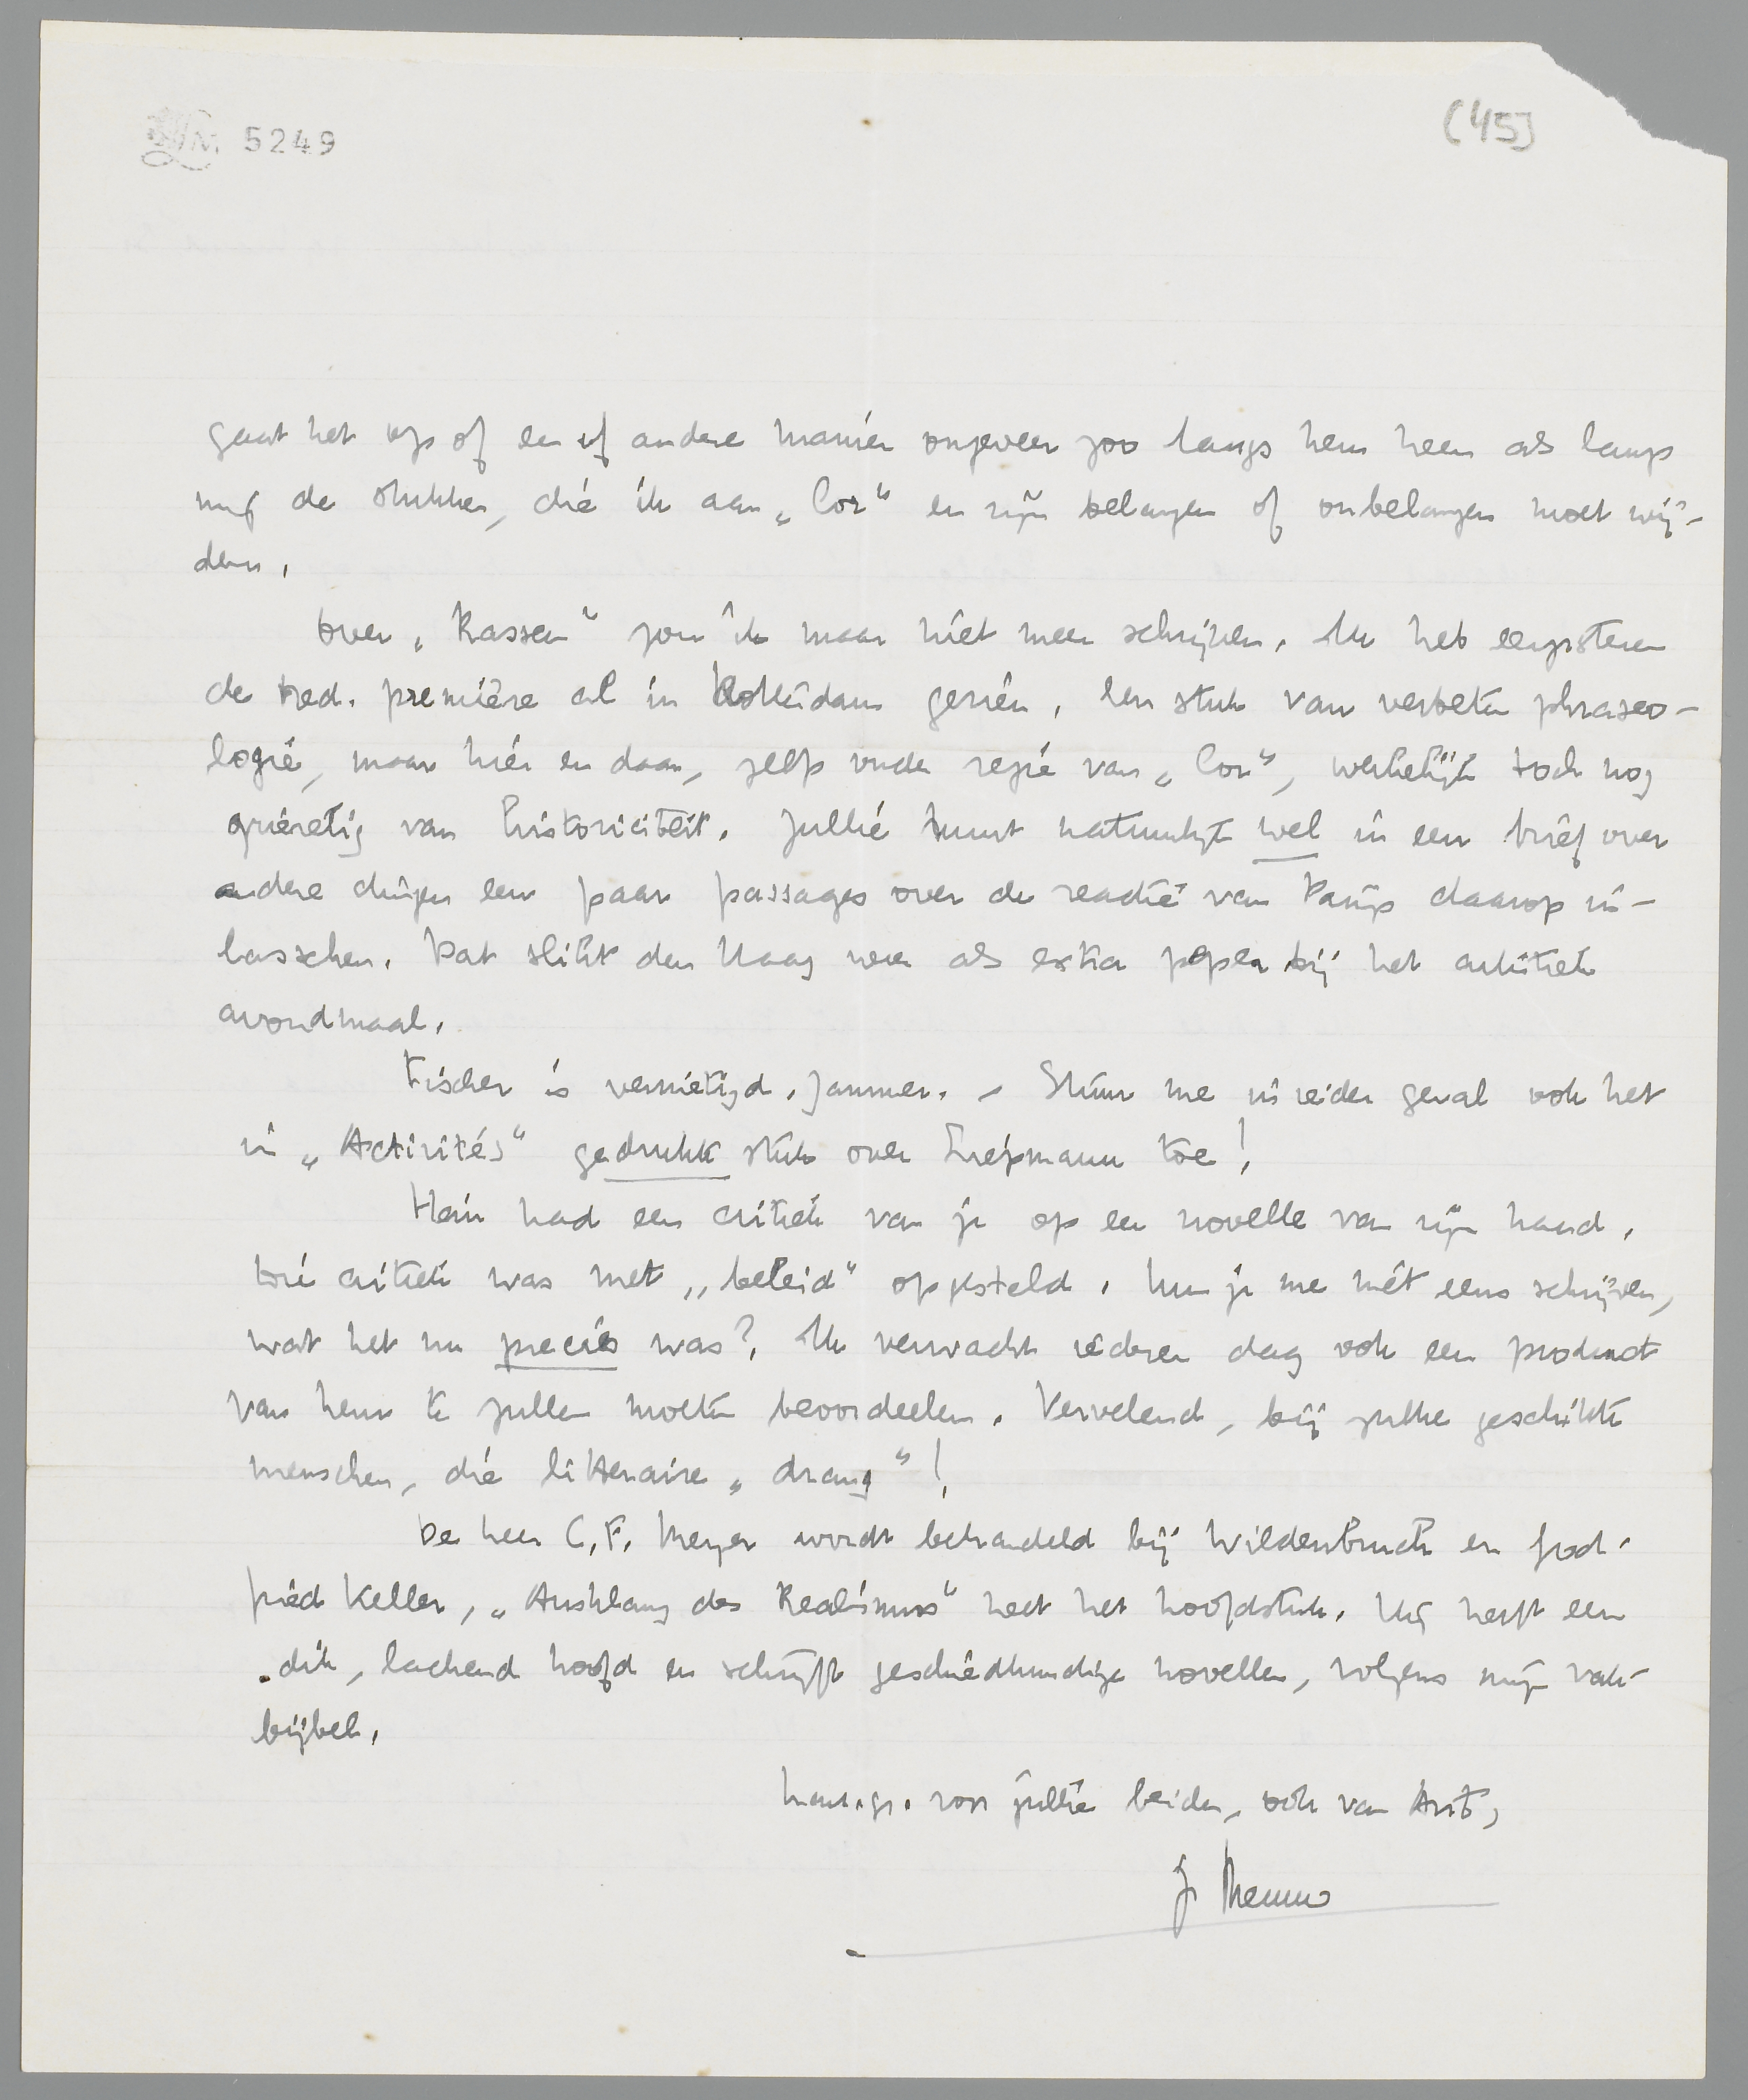 5249
(45)
gaat het op of een of andere manier ongeveer zoo langs hem heen als langs
mij de stukken, die ik aan „Cor" en zijn belangen of onbelangen moet wij-
den.
Over „Rassen" zou ik maar niet meer schrijven. Ik heb eergisteren
de Ned. première al in Rotterdam gezien, een stuk van verbeten phraseo-
logie, maar hier en daar, zelfs onder regie van „Cor", werkelijk toch nog
griezelig van historiciteit. Jullie kunt natuurlijk wel in een brief over
andere dingen een paar passages over de reactie van Parijs daarop in-
lasschen. Dat slikt den Haag weer als extra peper bij het artistiek
avondmaal.
Fischer is vernietigd. Jammer. – Stuur me in ieder geval ook het
in „Activités" gedrukte stuk over Liepmann toe!
Hein had een critiek van je op een novelle van zijn hand.
Die critiek was met „beleid" opgesteld. Kun je me niet eens schrijven,
wat het nu precies was? Ik verwacht iederen dag ook een product
van hem te zullen moeten beoordeelen. Vervelend, bij zulke geschikte
menschen, die litteraire „drang"!
De heer C.F. Meyer wordt behandeld bij Wildenbruch en Gott-
fried Keller, „Ausklang des Realismus" heet het hoofdstuk. Hij heeft een
dik, lachend hoofd en schrijft geschiedkundige novellen, volgens mijn vak-
bijbel.
hart. gr. voor jullie beiden, ook van Ant,
je Menno